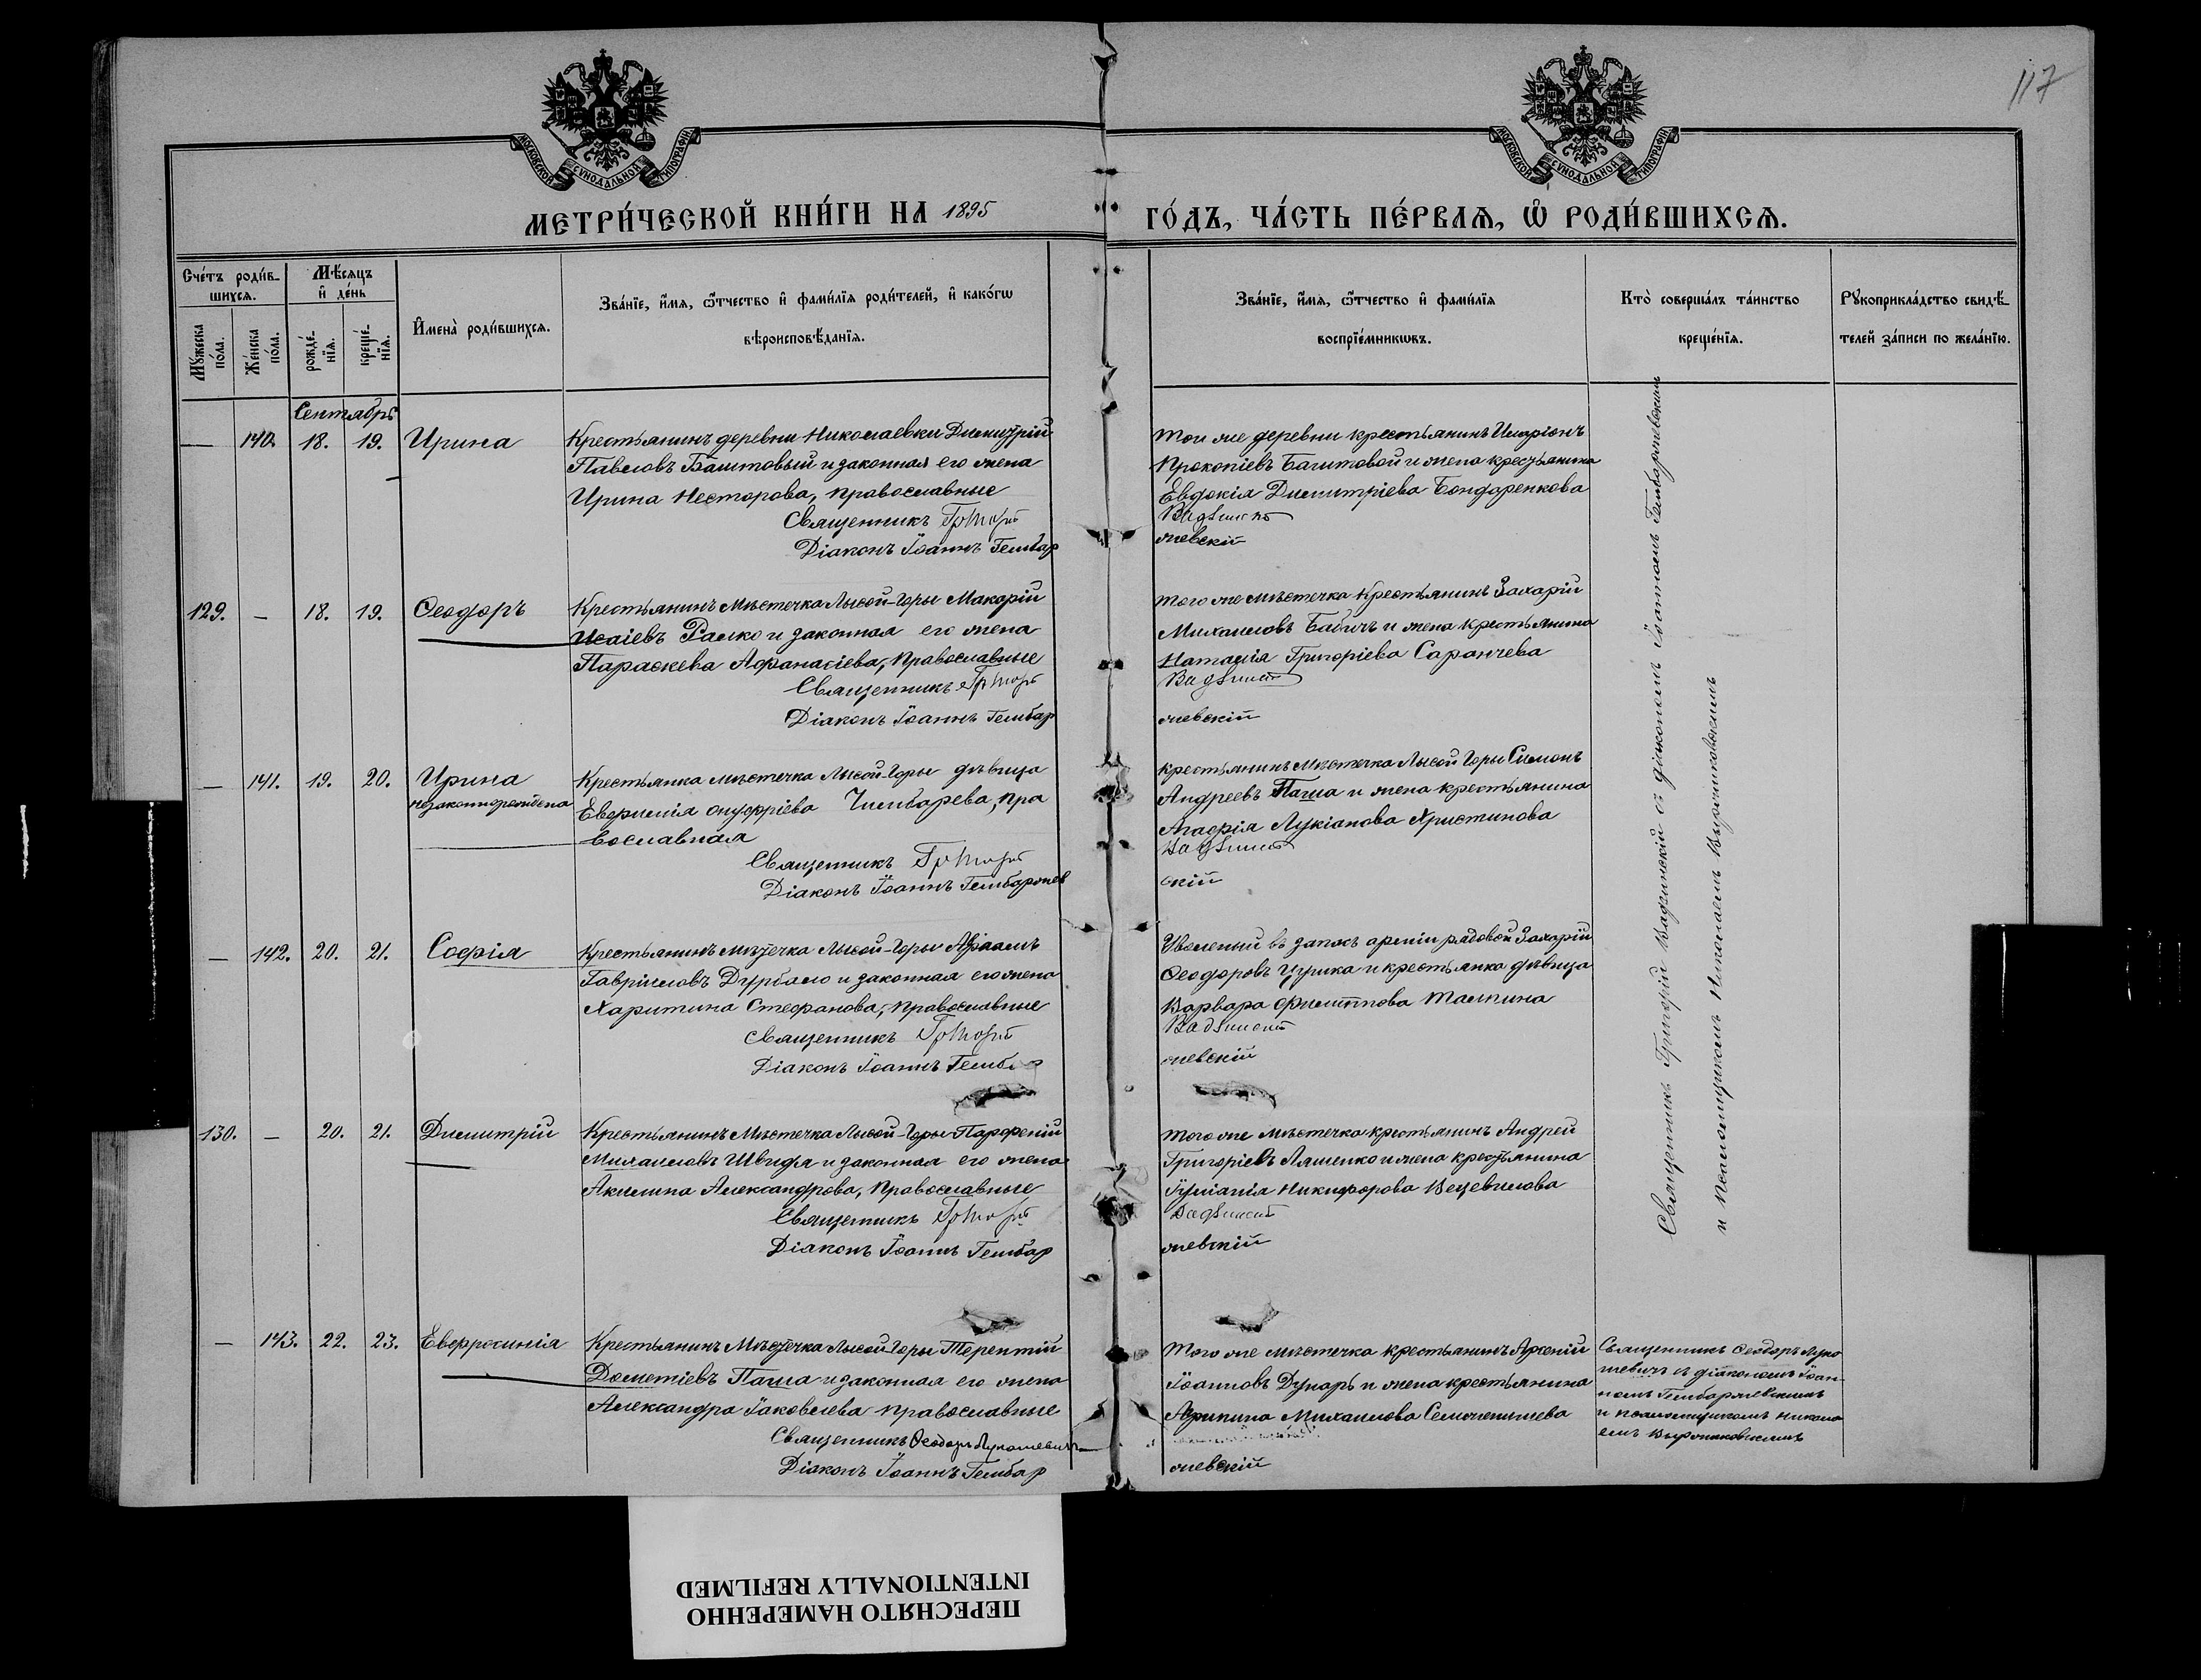 117
МОСКОВСКОЙ СѴНОДАЛЬНОЙ ТИПОГРАФІИ
МОСКОВСКОЙ СѴНОДАЛЬНОЙ ТИПОГРАФІИ
МЕТРИ́ЧЕСКОЙ КНИ́ГИ НА 1895
ГО́ДЪ, ЧА́СТЬ ПЕ́РВАѦ, Ѡ РОДИ́ВШИХСѦ.
Сче́тъ роди́в-
шихсѧ.
Мѣ́сѧцъ
и҆ де́нь
Мꙋжеска
по́ла.
Же́нска
по́ла.
рожде́-
нїѧ.
креще́-
нїѧ.
И҆мена̀ роди́вшихсѧ.
Зва́нїе, и҆́мѧ, ѻ҆́тчество и҆ фами́лїѧ роди́телей, и҆ како́гѡ
вѣроисповѣ́данїѧ.
Зва́нїе, и҆́мѧ, ѻ҆́тчество и҆ фами́лїѧ
воспрїе́мникѡвъ.
Кто̀ соверша́лъ та́инство
креще́нїѧ.
Рꙋкоприкла́дство свидѣ́-
телей за́писи по жела́нїю.
Сентябрь
— 140. 18. 19. Ирина
Крестьянинъ деревни Николаевки Димитрій
Павловъ Баштовый и законная его жена
Ирина Несторова, православные
Священникъ Григорій
Діаконъ Іоаннъ Гембар
Той же деревни крестьянинъ Иларіонъ
Прокопіевъ Баштовой и жена крестьянина
Евдокія Димитріева Бондаренкова
Вадзинскій
жевскій
129. — 18. 19. Ѳеодоръ
Крестьянинъ Мѣстечка Лысой-Горы Макарій
Исаіевъ Ралко и законная его жена
Параскева Афанасіева, Православные
Священникъ Григорій
Діаконъ Іоаннъ Гембар
Того же мѣстечка Крестьянинъ Захарій
Михаиловъ Бабичъ и жена Крестьянина
Наталія Григоріева Саранчева
Вадзинскій
жевскій
— 141. 19. 20. Ирина
незаконнорожденна
Крестьянка мѣстечка Лысой-Горы дѣвица
Евфимія Онуфріева Чимбарева, Пра
вославная
Священникъ Григорій
Діаконъ Іоаннъ Гембаржев
Крестьянинъ Мѣстечка Лысой Горы Симонъ
Андреевъ Паша и жена крестьянина
Агафія Лукіанова Христинова
Вадзинскій
скій
— 142. 20. 21. Софія
Крестьянинъ мѣстечка Лысой-Горы
Гавріиловъ Дурбало и законная его жена
Харитина Стефанова, православные
Священникъ Григорій
Діаконъ Іоаннъ Гембар
Уволеный въ запасъ арміи рядовой Захарій
Ѳеодоровъ Цурика и крестьянка дѣвица
Варвара Филиппова Талпина
Вадзинскій
жевскій
130. — 20. 21. Димитрій
Крестьянинъ Мѣстечка Лысой-Горы Парфеній
Михаиловъ Швидя и законная его жена
Акилина Александрова, Православные
Священникъ Григорій
Діаконъ Іоаннъ Гембар
Того же мѣстечка крестьянинъ Андрей
Григоріевъ Ляшенко и жена крестьянина
Іуліанія Никифорова
Вадзинскій
жевскій
— 143. 22. 23. Евфросинія
Крестьянинъ Мѣстечка Лысой-Горы Терентій
Дометіевъ Паша и законная его жена
Александра Іаковлева православные
Священникъ Ѳеодоръ Лукашевичъ
Діаконъ Іоаннъ Гембар
Того же мѣстечка крестьянинъ Арсеній
Іоанновъ Дударь и жена крестьянина
Агрипина Михаилова
жевскій
Священникъ Григорій Вадзинскій съ діакономъ Іоанномъ Гембаржевскимъ
и псаломщикомъ Николаемъ Выржиковскимъ
Священникъ Ѳеодоръ Лука
шевичъ съ діакономъ Іоан-
номъ Гембаржевскимъ
и псаломщикомъ Никола
емъ Выржиковскимъ
ПЕРЕСНЯТО НАМЕРЕННО
INTENTIONALLY REFILMED